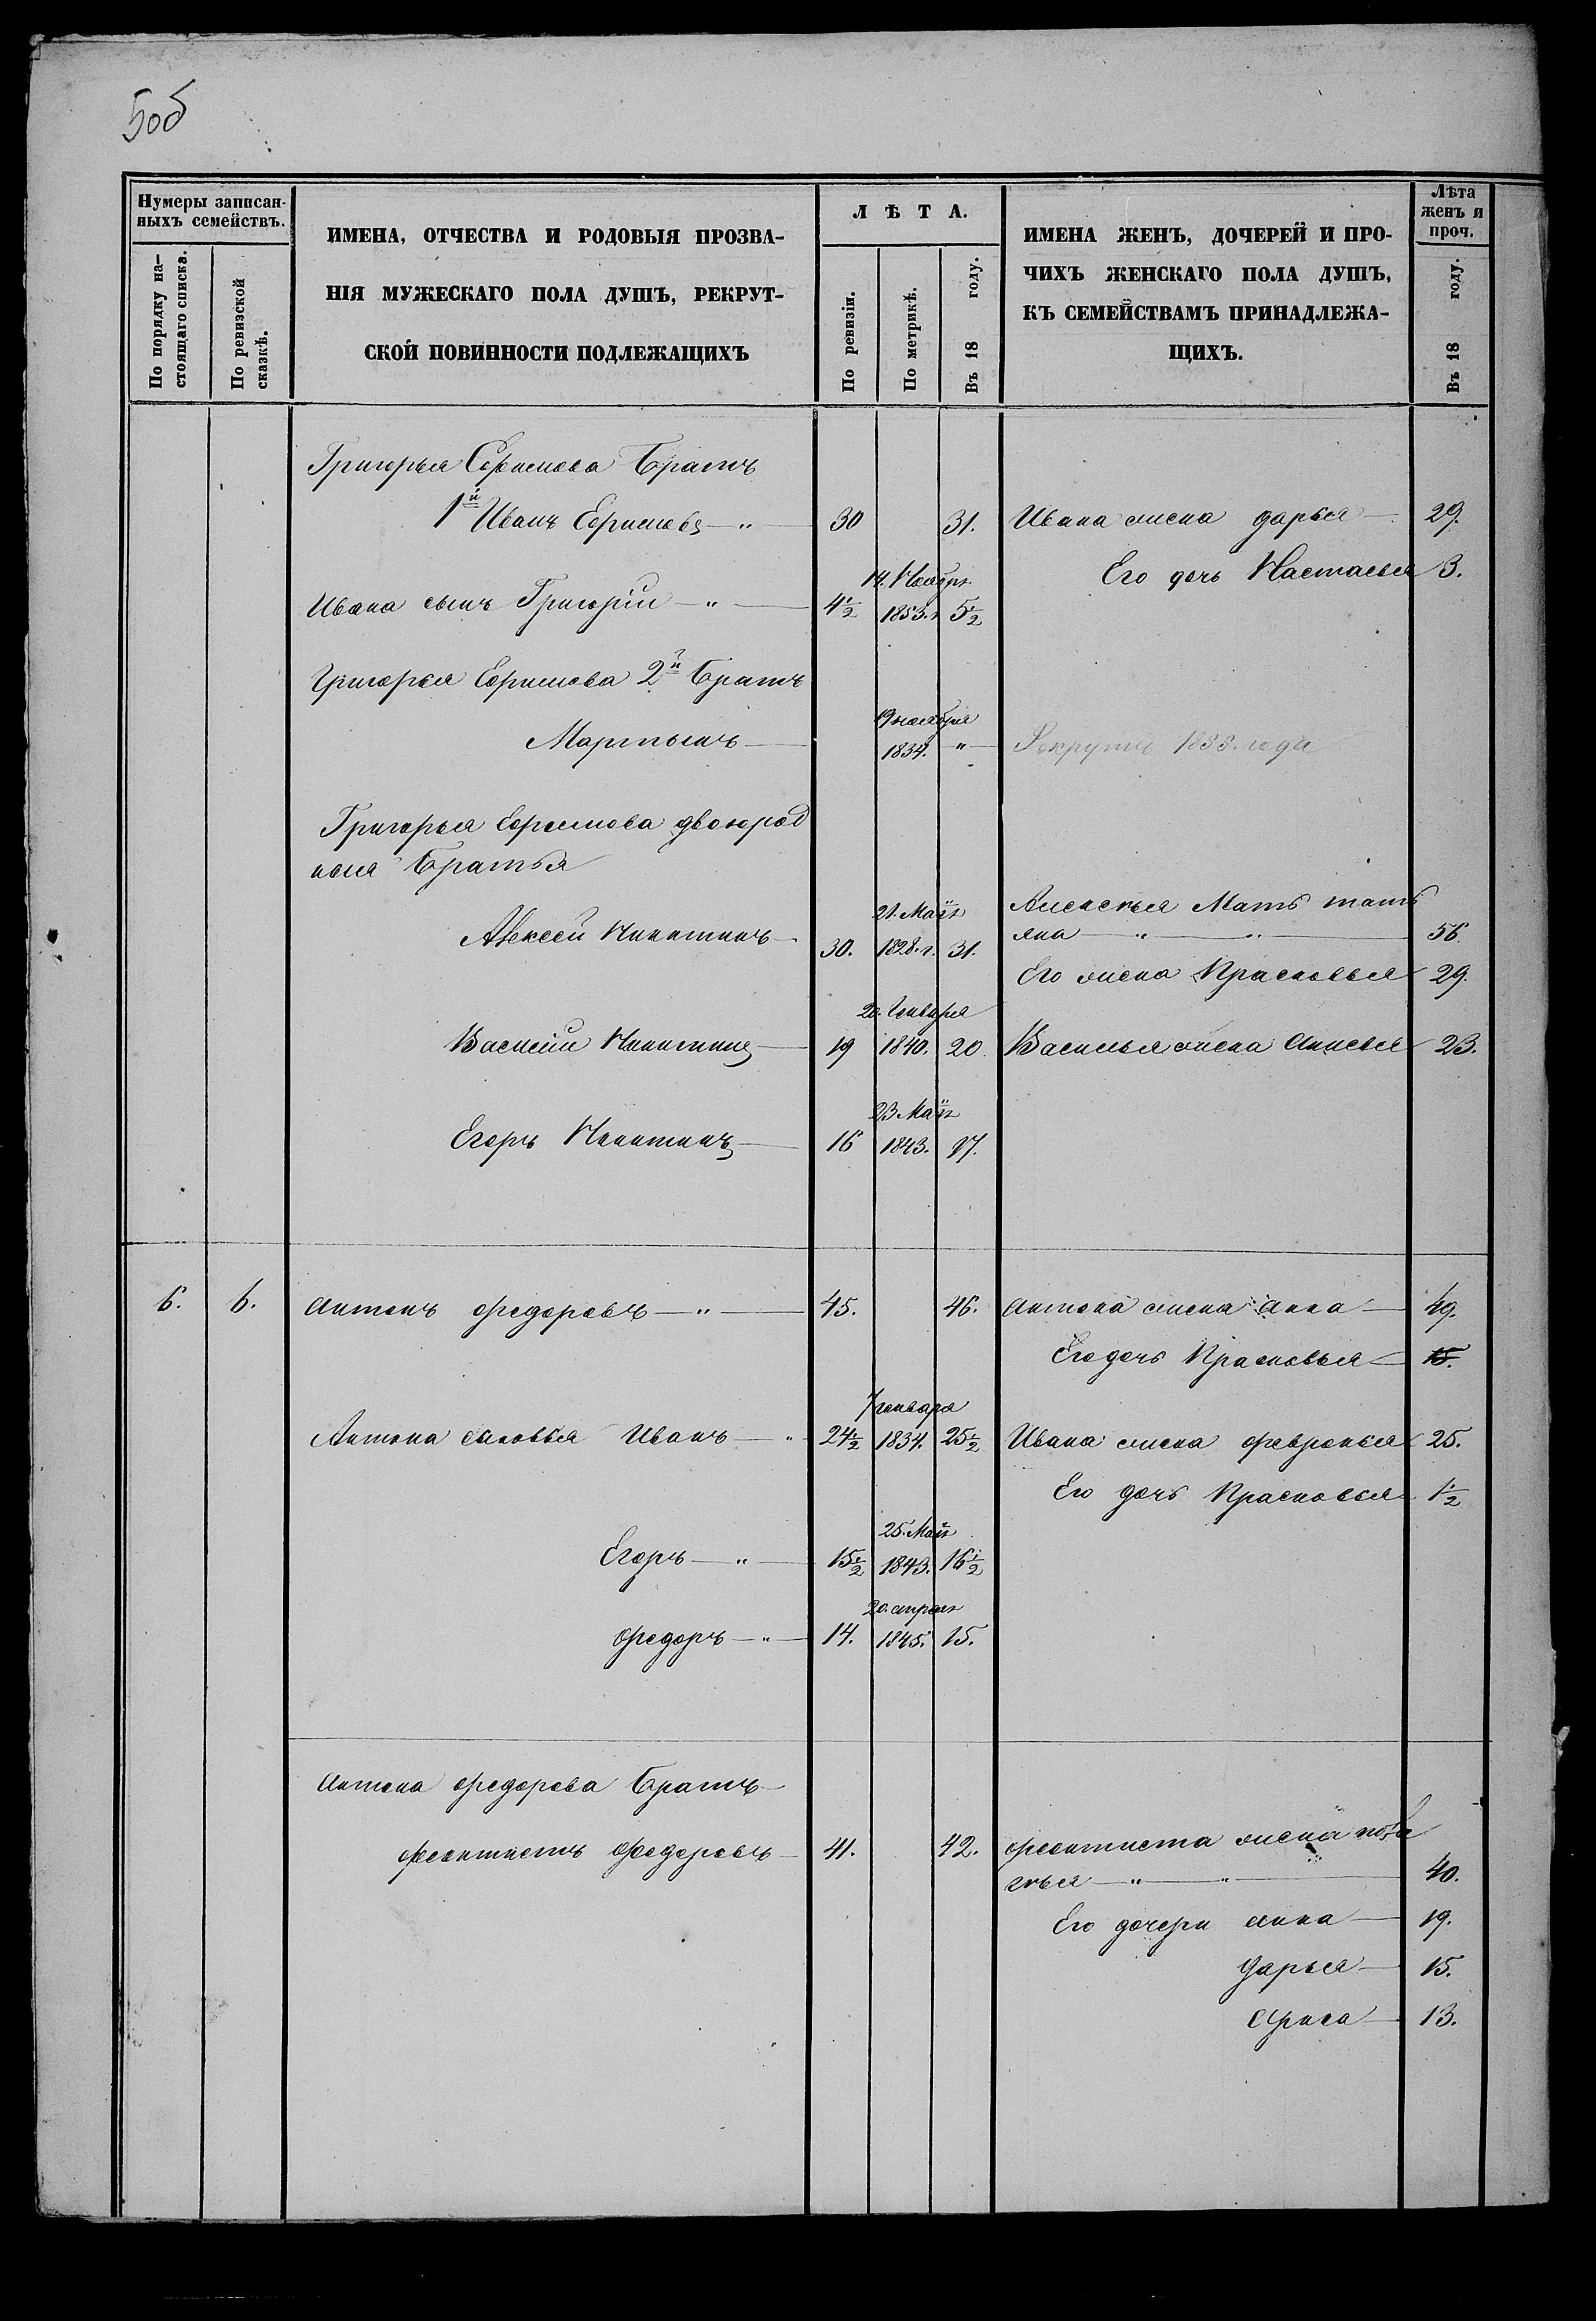 5об
Нумеры записан-
ныхъ семействъ.
По порядку на-
стоящаго списка.
По ревизской
сказкѣ.
ИМЕНА, ОТЧЕСТВА И РОДОВЫЯ ПРОЗВА-
НІЯ МУЖЕСКАГО ПОЛА ДУШЪ, РЕКРУТ-
СКОЙ ПОВИННОСТИ ПОДЛЕЖАЩИХЪ
ЛѢТА.
По ревизіи.
По метрикѣ.
Въ 18 году.
ИМЕНА ЖЕНЪ, ДОЧЕРЕЙ И ПРО-
ЧИХЪ ЖЕНСКАГО ПОЛА ДУШЪ,
КЪ СЕМЕЙСТВАМЪ ПРИНАДЛЕЖА-
ЩИХЪ.
Лѣта
женъ и
проч.
Въ 18 году.
Григорья Ефимова Братъ
1й Иванъ Ефимовъ — " — 30 31. Ивана жена дарья — 29.
14. Ноября Его дочь Настасья 3.
Ивана сынъ Григорій — " — 4 1/2 1853. г 5 1/2
Григорья Ефимова 2й Братъ
19 ноября
Мартынъ — 1834. " — Рекрутъ 1855. года
Григорья Ефимова двоюрод
ныя Братья
21. Маія Алексѣя Мать тать
Алексей Никитинъ — 30. 1828. г. 31. яна — " — " — 56.
Его жена Прасковья 29.
20. Генваря
Василій Никитинъ — 19 1840. 20. Василья жена Анисья 23.
23 Маія
Егоръ Никитинъ — 16 1843. 17.
6. 6. Антонъ федоровъ — " — 45. 46. Антона жена Анна — 49.
Его дочь Прасковья — 15.
7 генваря
Антона сыновья Иванъ — " 24 1/2 1834. 25 1/2 Ивана жена февронья 25.
Его дочь Прасковья 1 1/2
25. Маія
Егоръ — " — 15 1/2 1843. 16 1/2
20. апреля
федоръ — " — 14. 1845. 15.
Антона федорова Братъ —
феоктистъ федоровъ — 41. 42. феоктиста жена
— " — " — 40.
Его дочери анна — 19.
дарья — 15.
— 13.